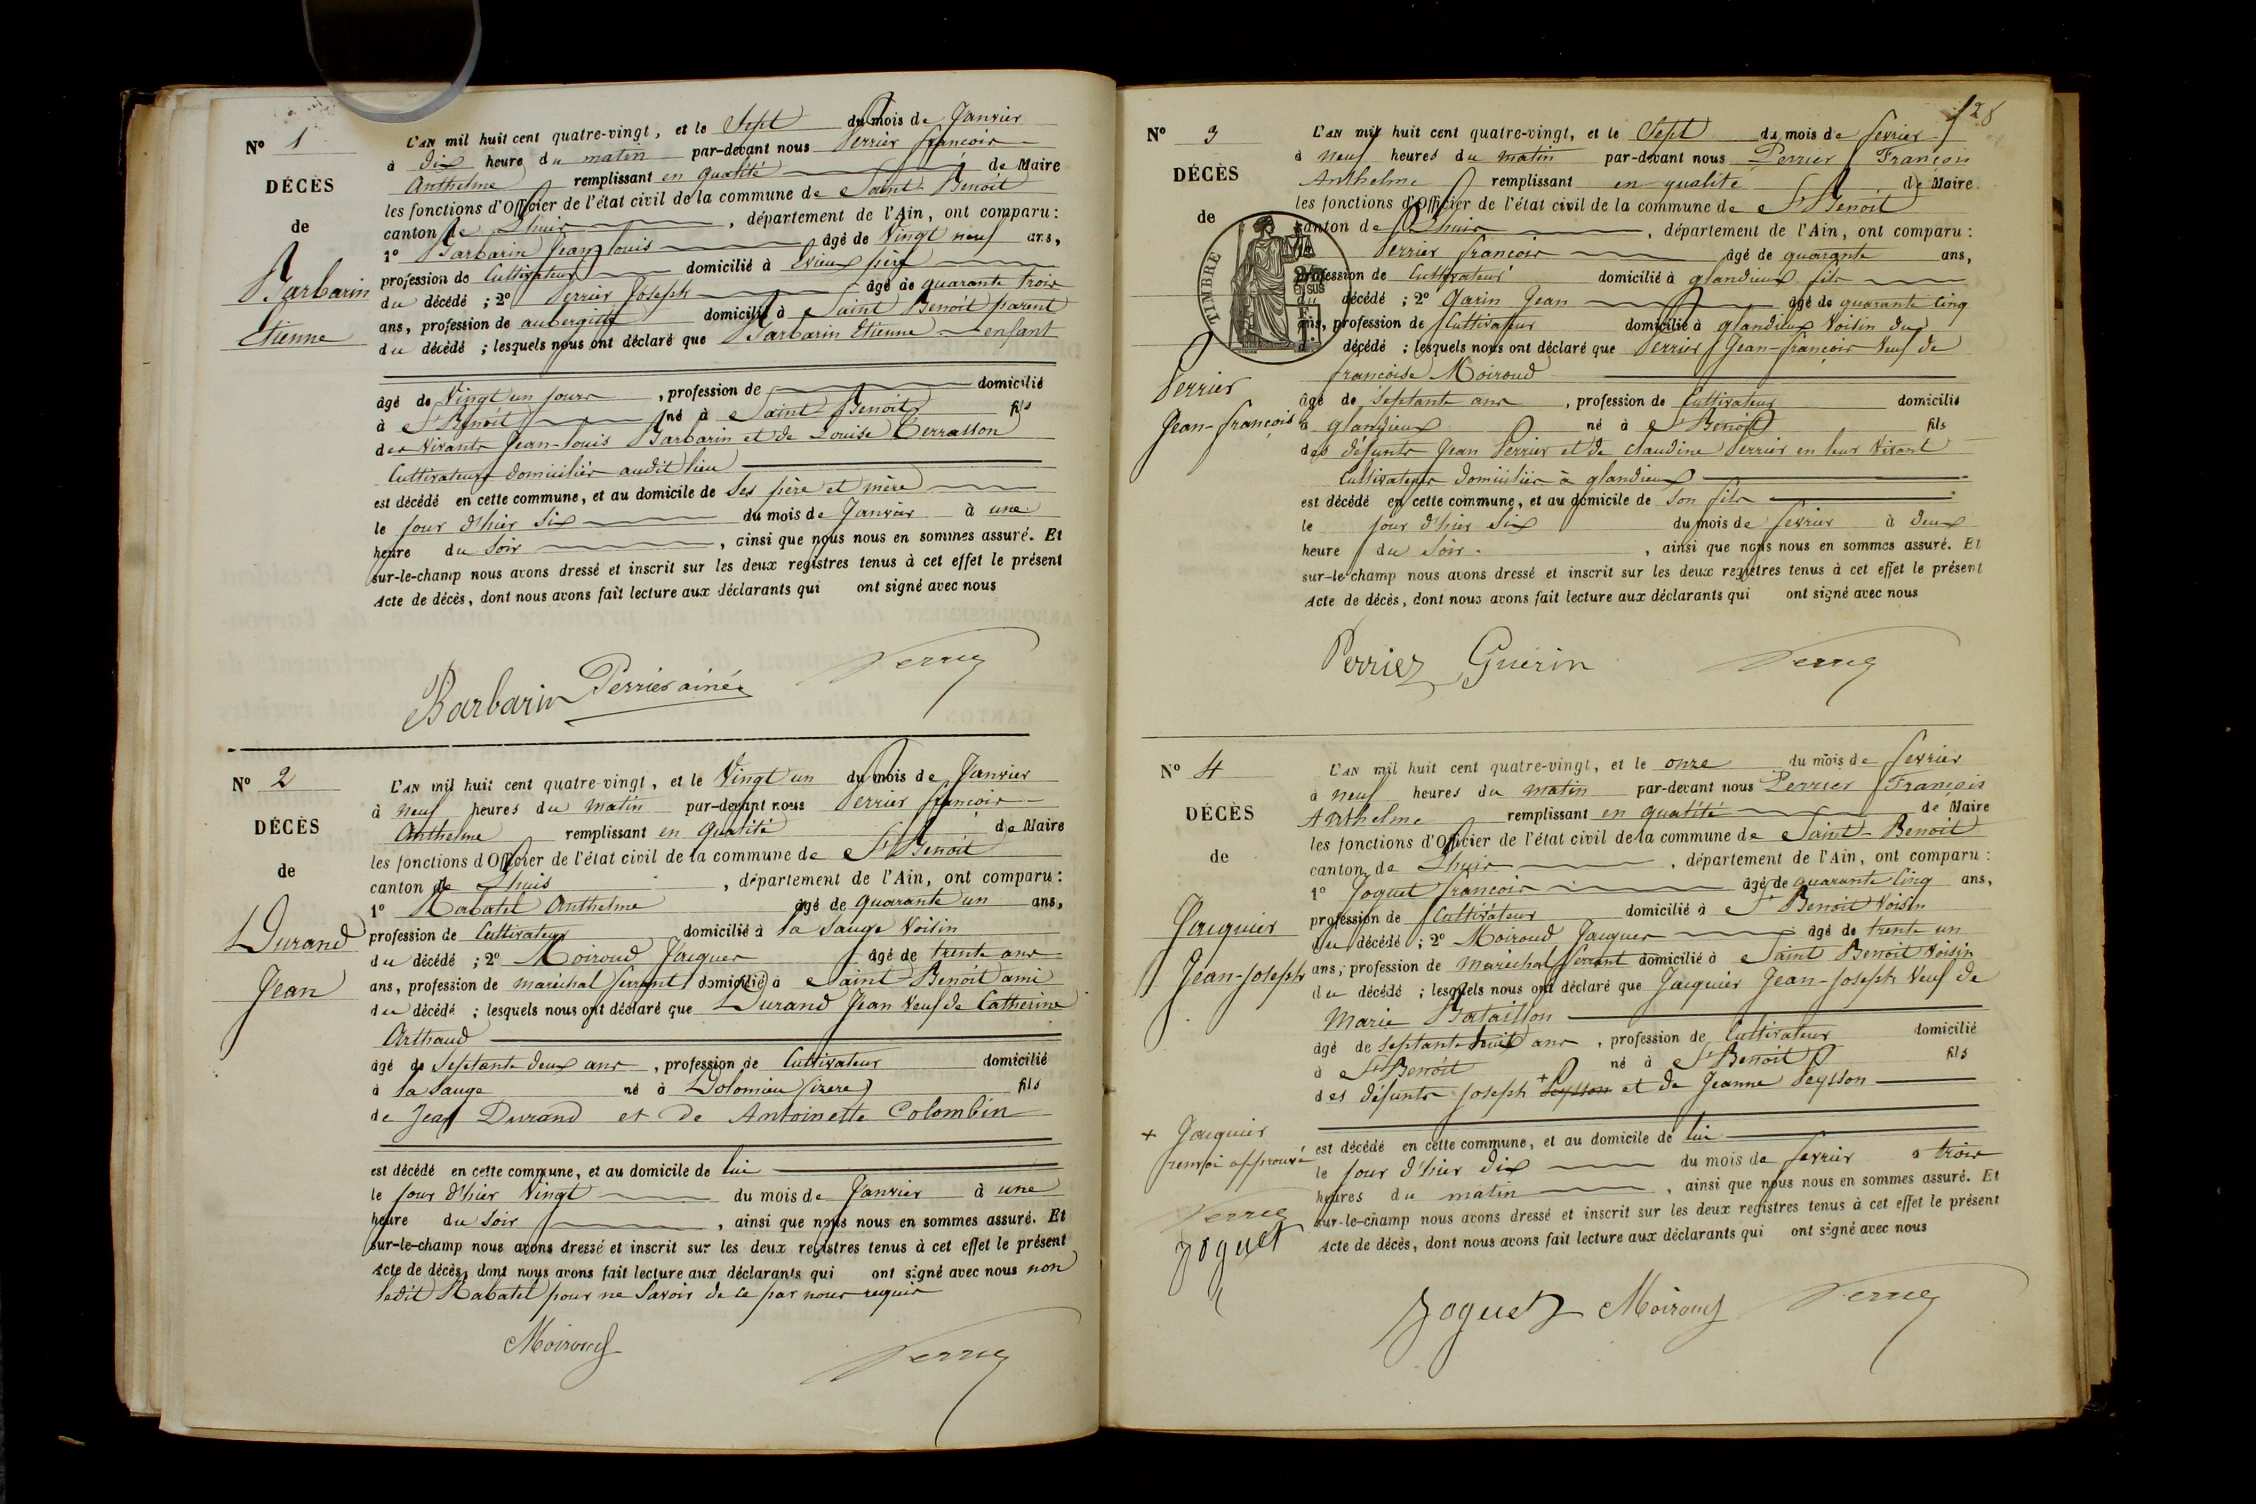 N° 1
DÉCÈS
de
Barbarin
Etienne
L'AN mil huit cent quatre-vingt, et le Sept du mois de Janvier
à Dix heure du matin par-devant nous Perrier françois
Anthelme remplissant en qualité de Maire
les fonctions d'Officier de l'état civil de la commune de Saint-Benoit
canton de Lhuis, département de l'Ain, ont comparu :
1° Barbarin Jean Louis âgé de Vingt neuf ans,
profession de Cultivateur domicilié à Evieux père
du décédé ; 2° Perrier Joseph âgé de quarante trois
ans, profession de aubergiste domicilié à Saint Benoit parent
du décédé ; lesquels nous ont déclaré que Barbarin Etienne enfant
âgé de Vingt un jours, profession de domicilié
à St Benoit né à Saint-Benoit fils
des Vivants Jean-Louis Barbarin et de Louise Terrasson
Cultivateurs domiciliés audit lieu
est décédé en cette commune, et au domicile de Ses père et mère
le jour d'hier Six du mois de Janvier à une
heure du Soir, ainsi que nous nous en sommes assuré. Et
sur-le-champ nous avons dressé et inscrit sur les deux registres tenus à cet effet le présent
Acte de décès, dont nous avons fait lecture aux déclarants qui ont signé avec nous
Barbarin Perrier ainé Perrier
N° 2
DÉCÈS
de
Durand
Jean
L'AN mil huit cent quatre-vingt, et le Vingt un du mois de Janvier
à neuf heures du matin par-devant nous Perrier françois
Anthelme remplissant en qualité de Maire
les fonctions d'Officier de l'état civil de la commune de St Benoit
canton de Lhuis, département de l'Ain, ont comparu :
1° Rabatel Anthelme âgé de quarante un ans,
profession de Cultivateur domicilié à la Sauge Voisin
du décédé ; 2° Moiroud Jacques âgé de trente ans
ans, profession de maréchal ferrant domicilié à Saint Benoit ami
du décédé ; lesquels nous ont déclaré que Durand Jean Veuf de Catherine
Arthaud
âgé de Septante deux ans, profession de Cultivateur domicilié
à la Sauge né à Dolomieu (izere) fils
de Jean Durand et de Antoinette Colombin
est décédé en cette commune, et au domicile de lui
le jour d'hier Vingt du mois de Janvier à une
heure du Soir, ainsi que nous nous en sommes assuré. Et
sur-le-champ nous avons dressé et inscrit sur les deux registres tenus à cet effet le présent
Acte de décès, dont nous avons fait lecture aux déclarants qui ont signé avec nous non
ledit Rabatel pour ne Savoir de ce par nous requis
Moiroud Perrier
128
N° 3
DÉCÈS
de
Perrier
Jean-françois
TIMBRE
L'AN mil huit cent quatre-vingt, et le Sept du mois de fevrier
à neuf heures du matin par-devant nous Perrier François
Anthelme remplissant en qualité de Maire
les fonctions d'Officier de l'état civil de la commune de St Benoit
canton de Lhuis, département de l'Ain, ont comparu :
Perrier françois âgé de quarante ans,
profession de Cultivateur domicilié à glandieux fils
du décédé ; 2° Garin Jean âgé de quarante cinq
ans, profession de Cultivateur domicilié à glandieux Voisin du
décédé ; lesquels nous ont déclaré que Perrier Jean-françois Veuf de
francoise Moiroud
âgé de Septante ans, profession de Cultivateur domicilié
à glandieux né à St Benoit fils
des défunts Jean Perrier et de Claudine Perrier en leur Vivant
Cultivateurs domiciliés à glandieux
est décédé en cette commune, et au domicile de Son fils
le jour d'hier Six du mois de fevrier à deux
heure du Soir., ainsi que nous nous en sommes assuré. Et
sur-le-champ nous avons dressé et inscrit sur les deux registres tenus à cet effet le présent
Acte de décès, dont nous avons fait lecture aux déclarants qui ont signé avec nous
Perrier Guérin Perrier
N° 4
DÉCÈS
de
Jacquier
Jean-Joseph
L'AN mil huit cent quatre-vingt, et le onze du mois de fevrier
à neuf heures du matin par-devant nous Perrier François
Anthelme remplissant en qualité de Maire
les fonctions d'Officier de l'état civil de la commune de Saint-Benoit
canton de Lhuis, département de l'Ain, ont comparu :
1° Joguet françois âgé de quarante cinq ans,
profession de Cultivateur domicilié à St Benoit Voisin
du décédé ; 2° Moiroud Jacques âgé de trente un
ans, profession de maréchal ferrant domicilié à Saint Benoit Voisin
du décédé ; lesquels nous ont déclaré que Jacquier Jean-Joseph Veuf de
Marie Bataillon
âgé de Septante huit ans, profession de Cultivateur domicilié
à St Benoit né à St Benoit fils
des défunts Joseph + Peysson et de Jeanne Peysson
est décédé en cette commune, et au domicile de lui
le jour d'hier dix du mois de fevrier à trois
heures du matin, ainsi que nous nous en sommes assuré. Et
sur-le-champ nous avons dressé et inscrit sur les deux registres tenus à cet effet le présent
Acte de décès, dont nous avons fait lecture aux déclarants qui ont signé avec nous
+ Jacquier
renvoi approuvé
Perrier
Joguet
Joguet Moiroud Perrier